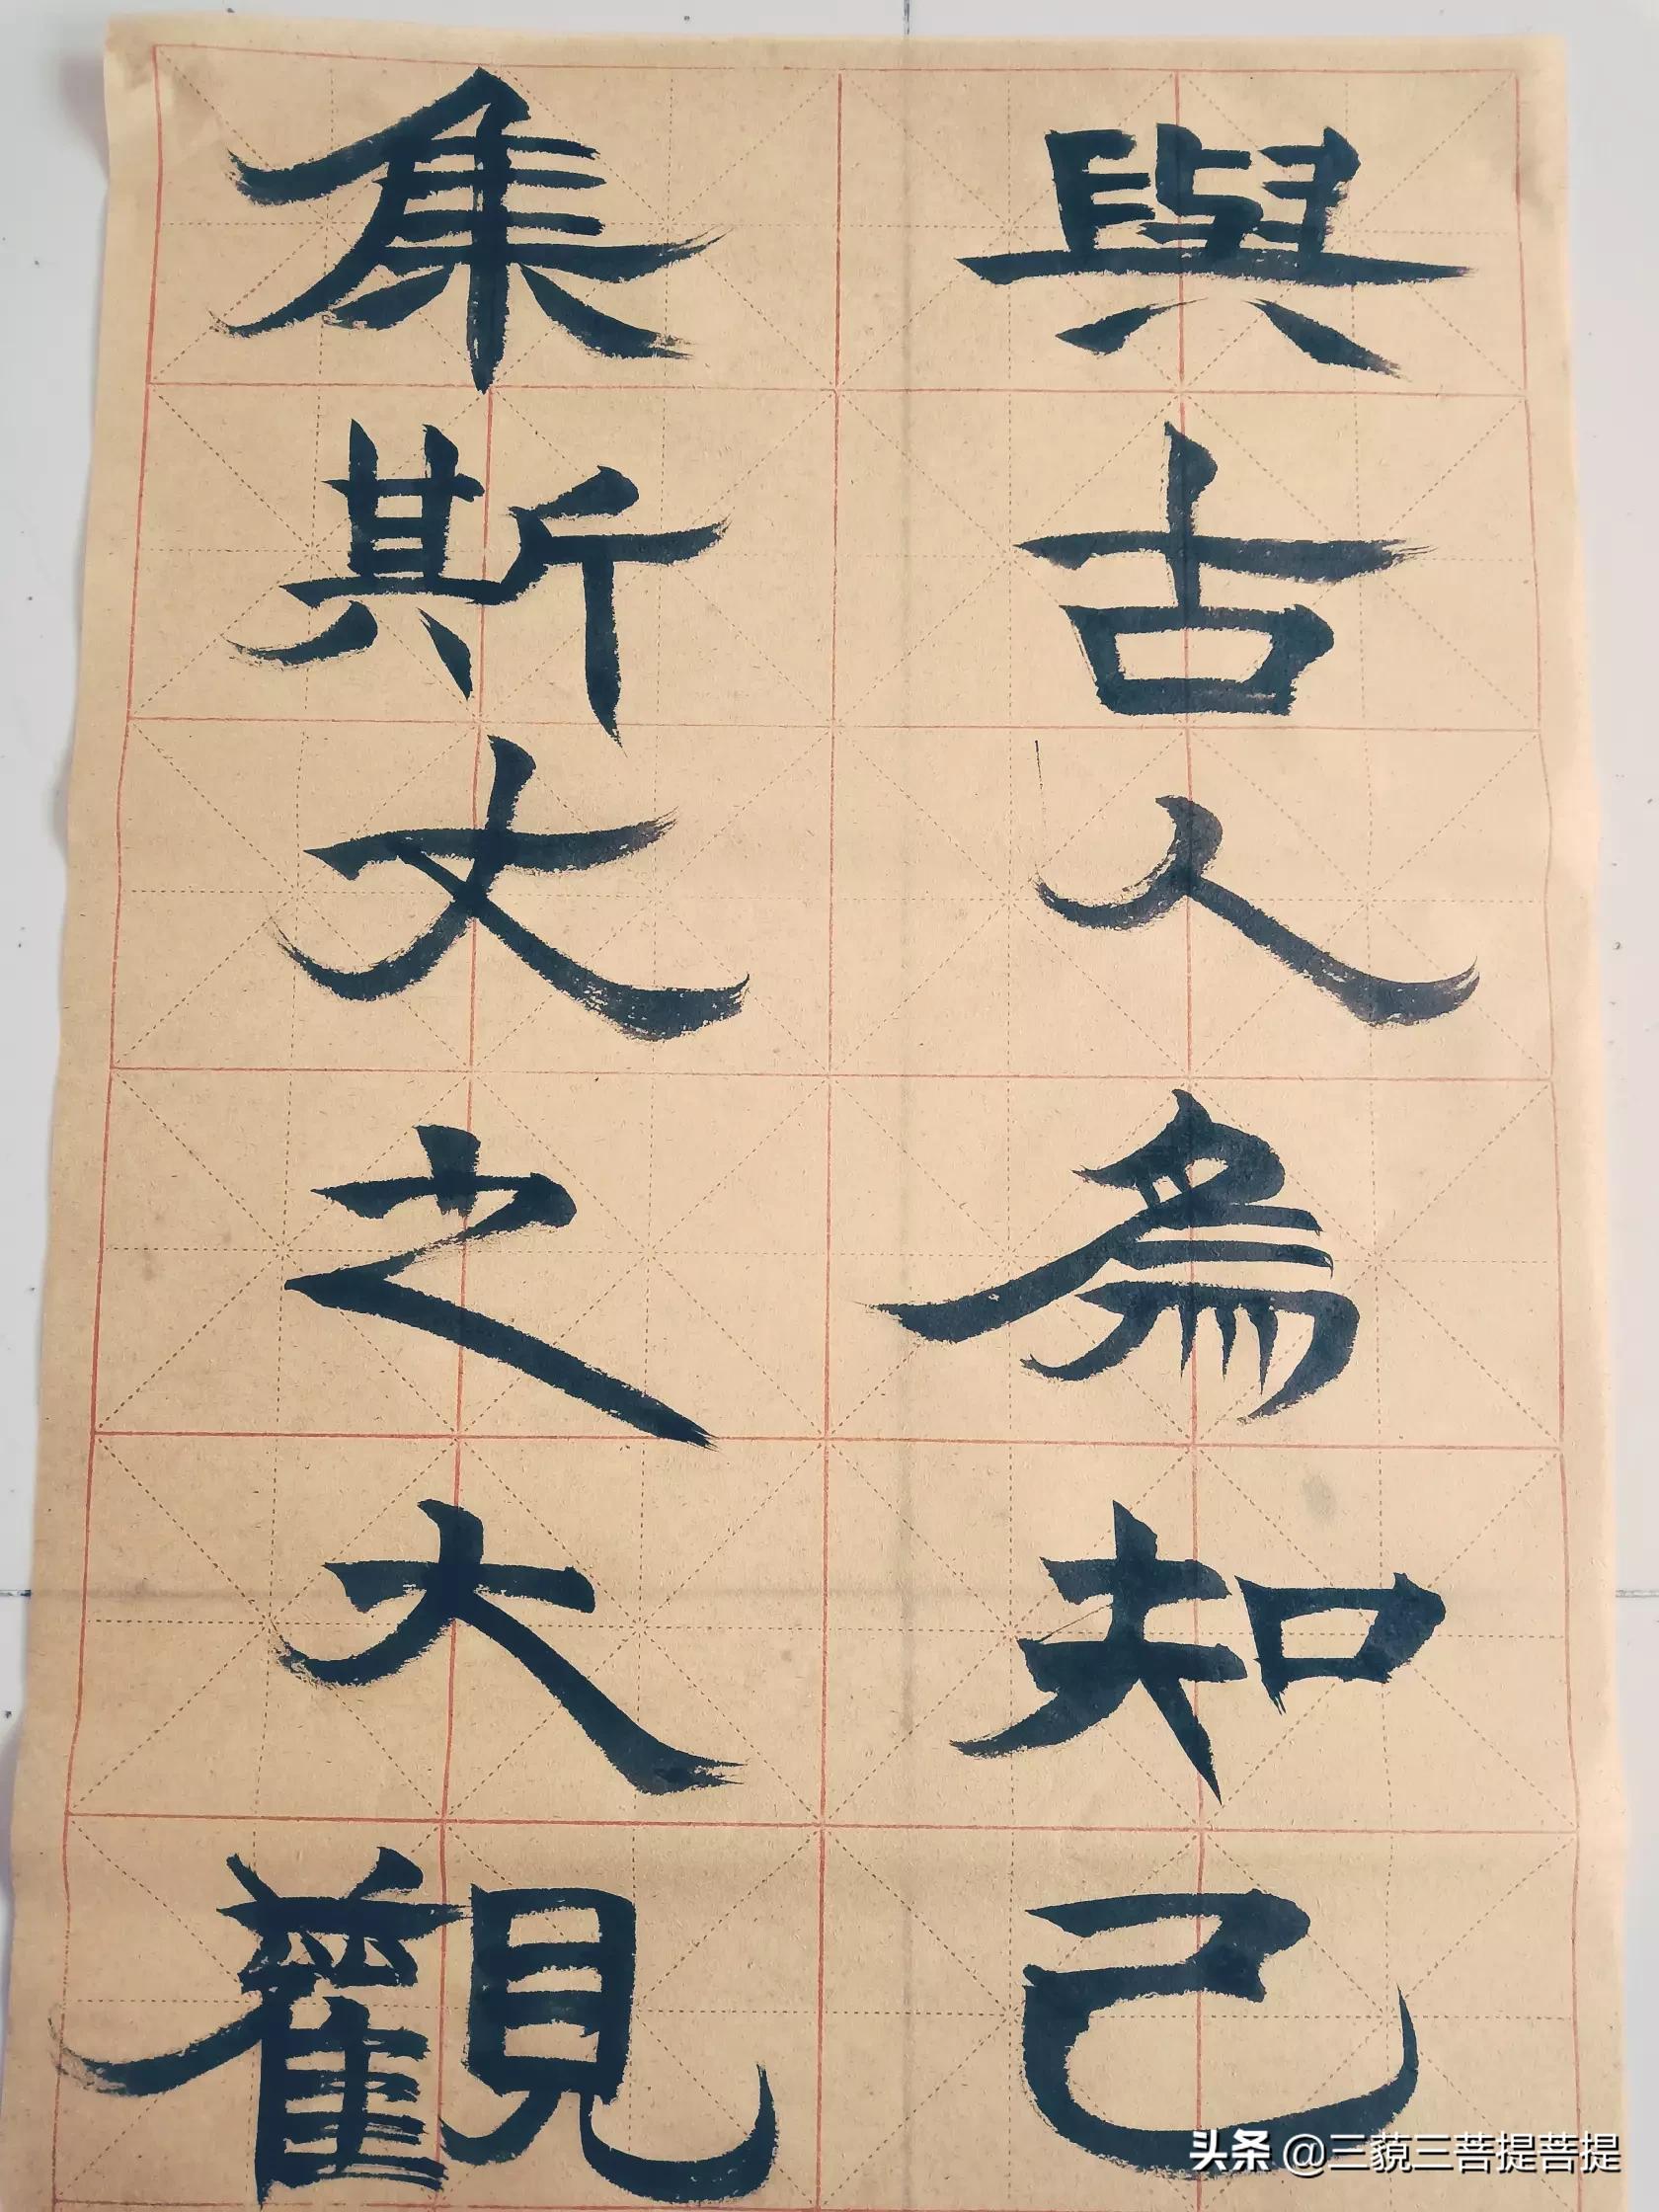 與古人為知己
集斯文之大觀
头条 @三藐三菩提菩提